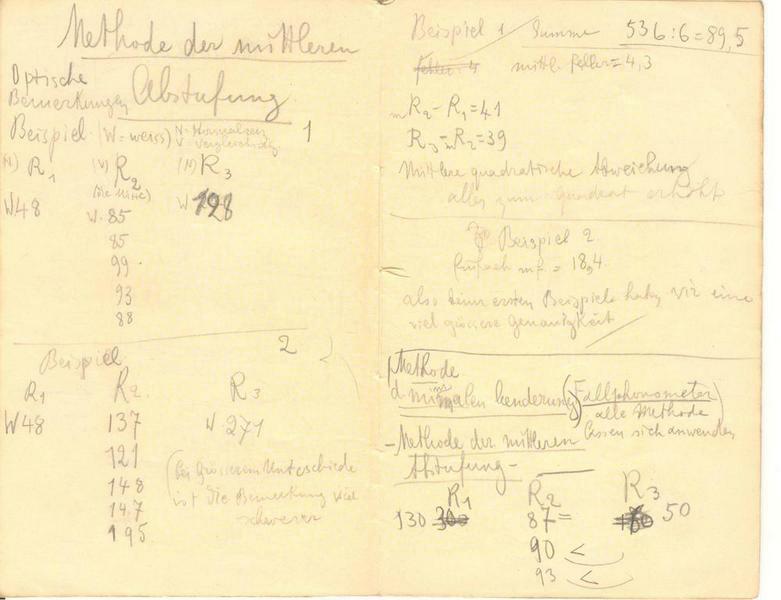 Methode der mittleren
Abstufung
Optische
Bemerkungen
Beispiel (W = weiss) N = Normalreiz 1
V = Vergleichsreiz
(N) R1 (V) R2 (N) R3
(die Mitte)
W 48 W. 85 W 198
85
99
93
88
Beispiel 2
R1 R2 R3
W 48 137 W 271
121
148
147
195
(bei grösserem Unterschiede
ist die Bemerkung viel
schwerer
Beispiel 1 Summe 536:6=89,5
fehler mittl. fehler = 4,3
mR2 - R1 = 41
R3 - mR2 = 39
Mittlere quadratische Abweichung
alles zum quadrat erhöht
Beispiel 2
einfach mf = 18,4
also beim ersten Beispiele haben wir eine
viel grössere Genauigkeit
Methode
d. minimalen Aenderung (Fallphonometer)
alle Methode
lassen sich anwenden
- Methode der mittleren
Abstufung -
R1 R2 R3
130 300 87 = 50
90 <
93 <